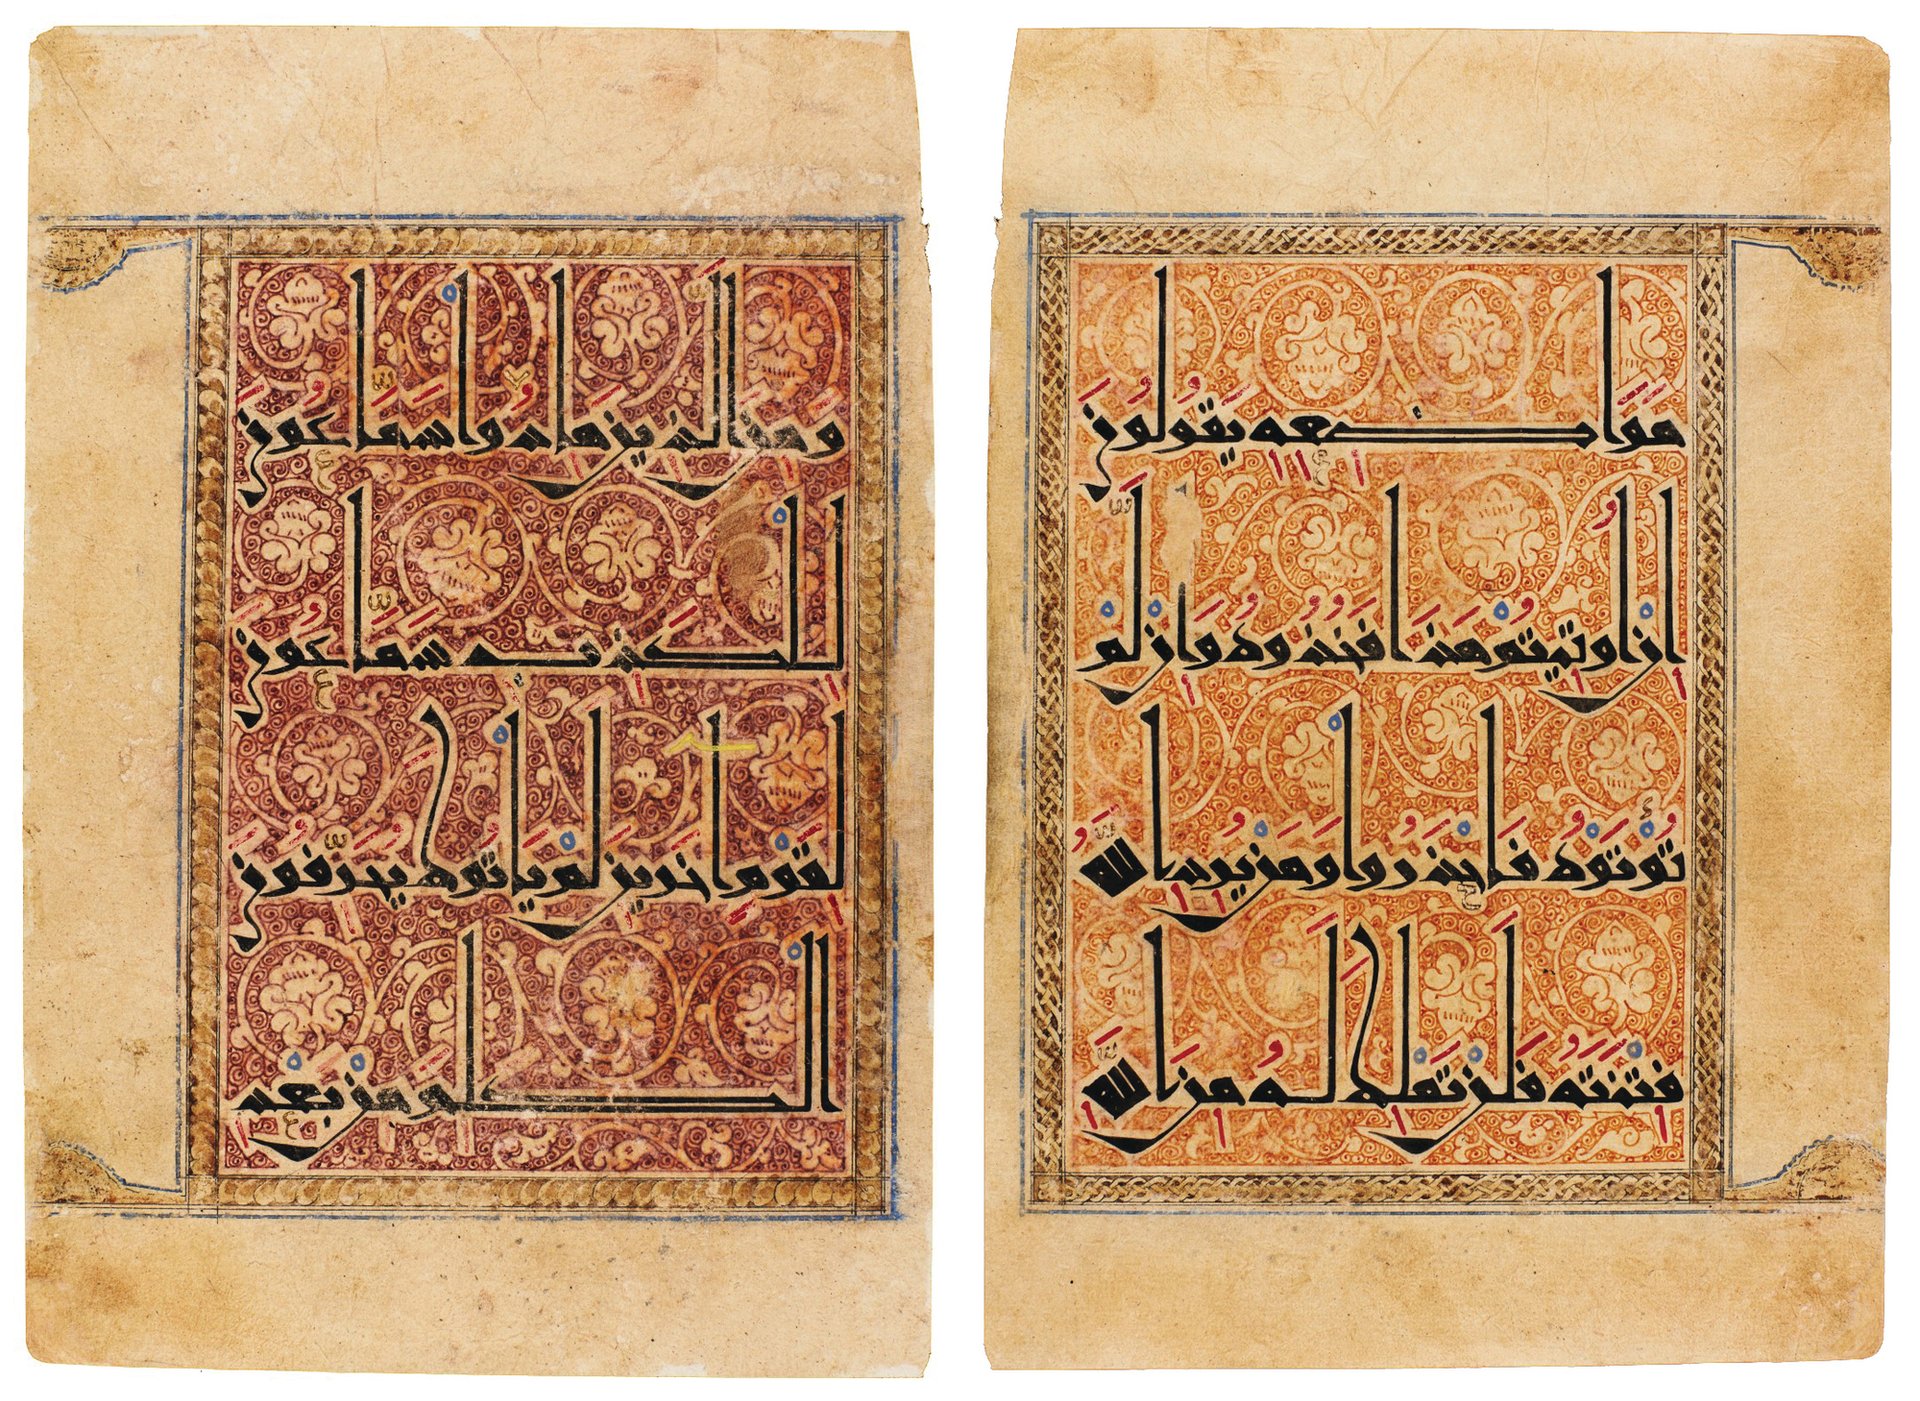 وَمِنَ الَّذِينَ هَادُوا سَمَّاعُونَ
لِلْكَذِبِ سَمَّاعُونَ
لِقَوْمٍ آخَرِينَ لَمْ يَأْتُوكَ يُحَرِّفُونَ
الْكَلِمَ مِنْ بَعْدِ
مَوَاضِعِهِ يَقُولُونَ
إِنْ أُوتِيتُمْ هَذَا فَخُذُوهُ وَإِنْ لَمْ
تُؤْتَوْهُ فَاحْذَرُوا وَمَنْ يُرِدِ اللَّهُ
فِتْنَتَهُ فَلَنْ تَمْلِكَ لَهُ مِنَ اللَّهِ